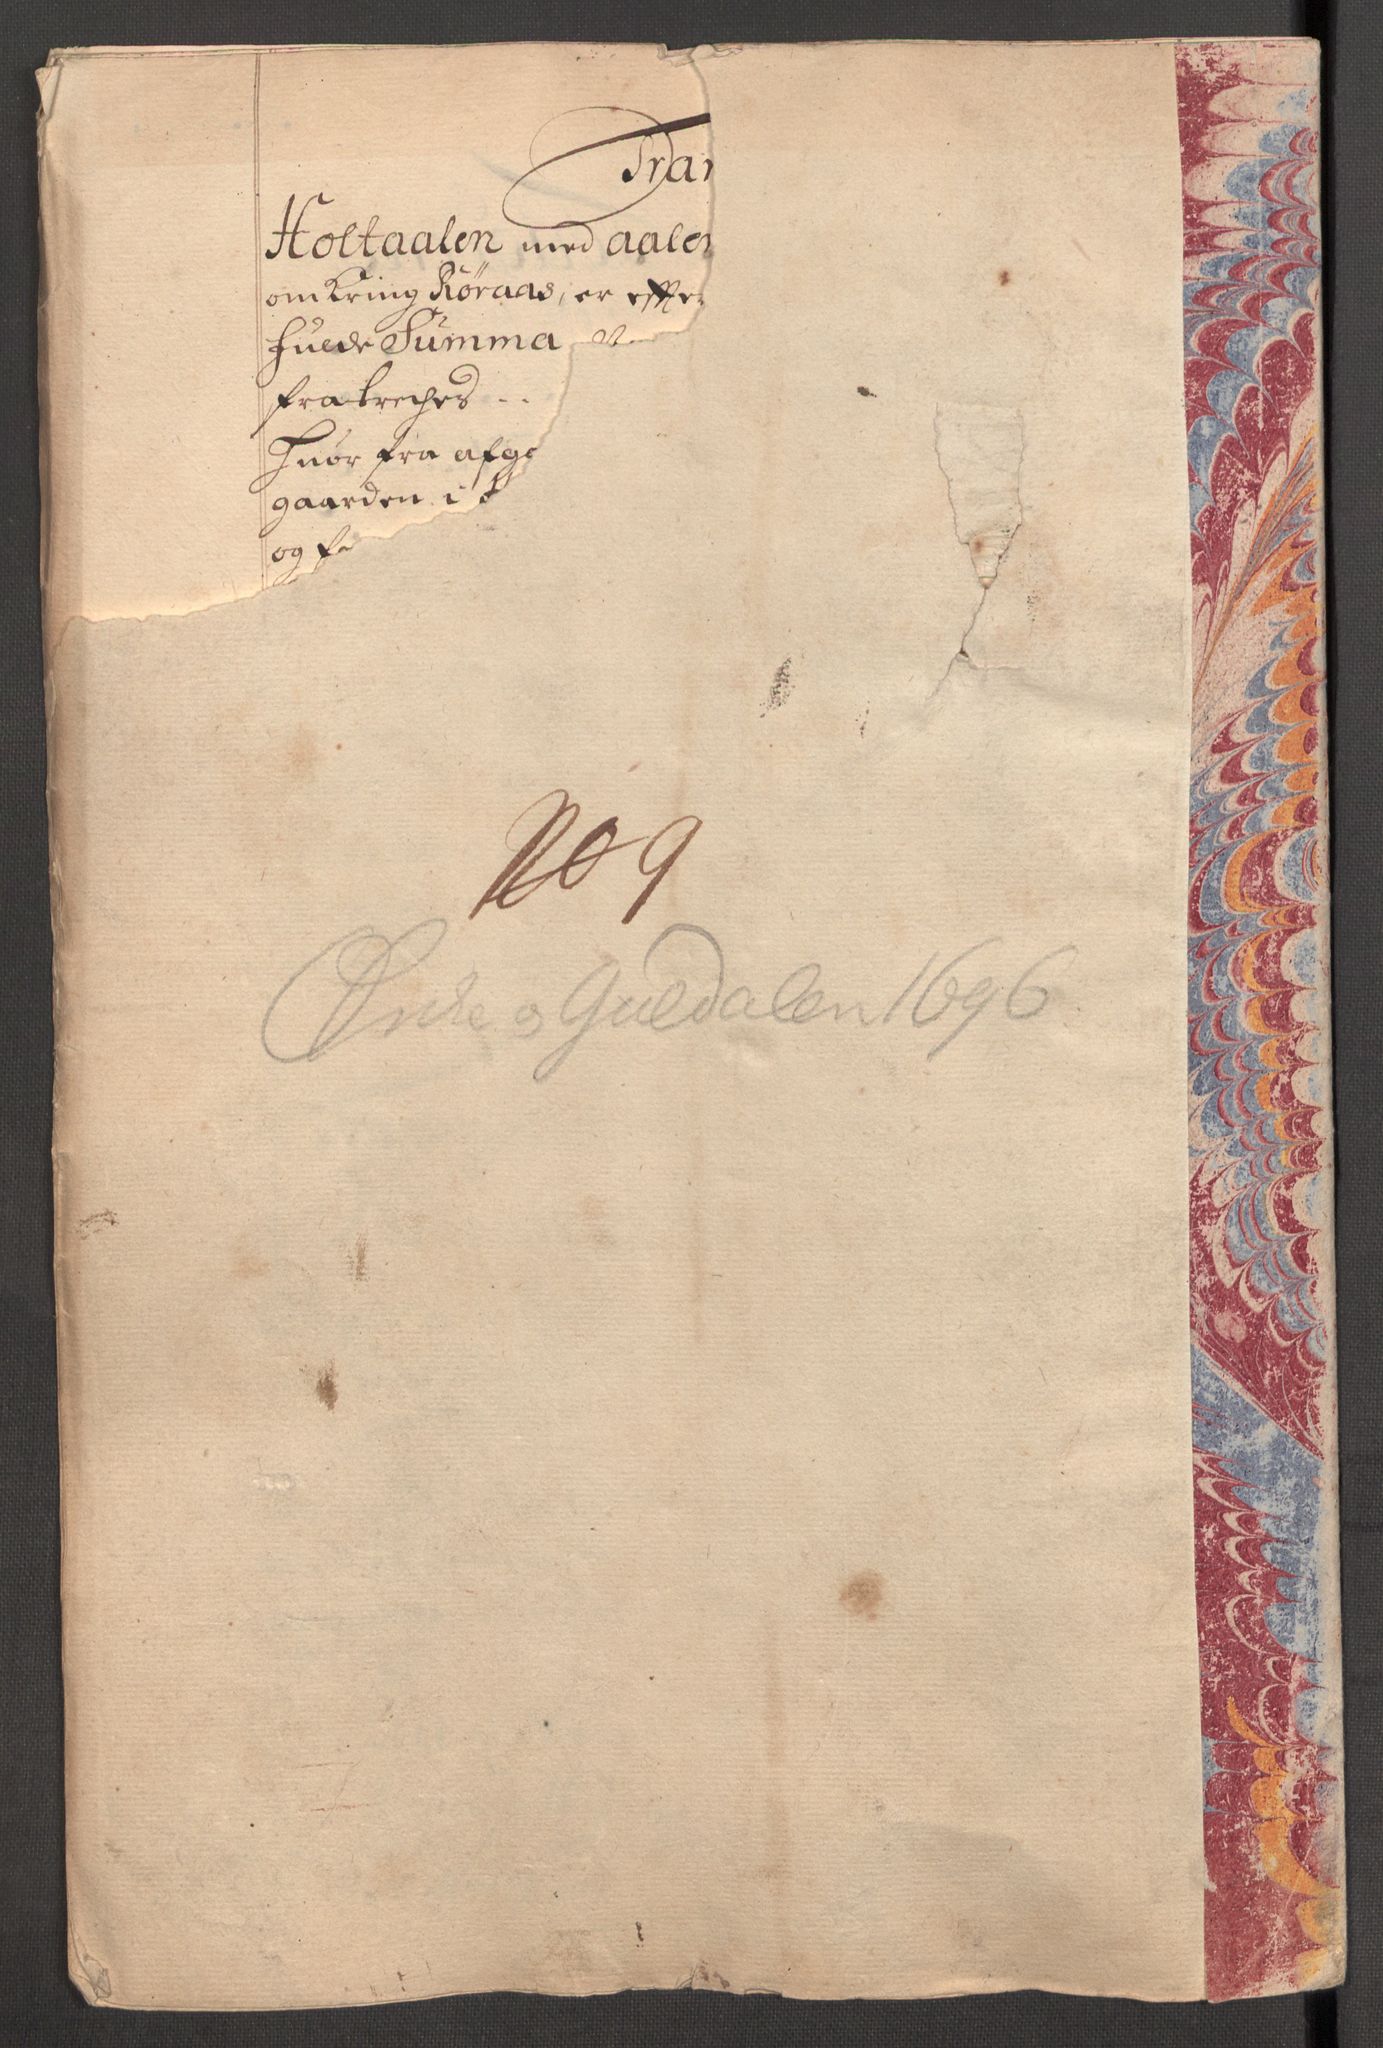 Tran
Holtaalen med aalen
omkring Røraas, er effte
fulde Summa
fratreches - -
Huor fra afge
gaarden i
og
No 9
Ørche og Guldalen 1696